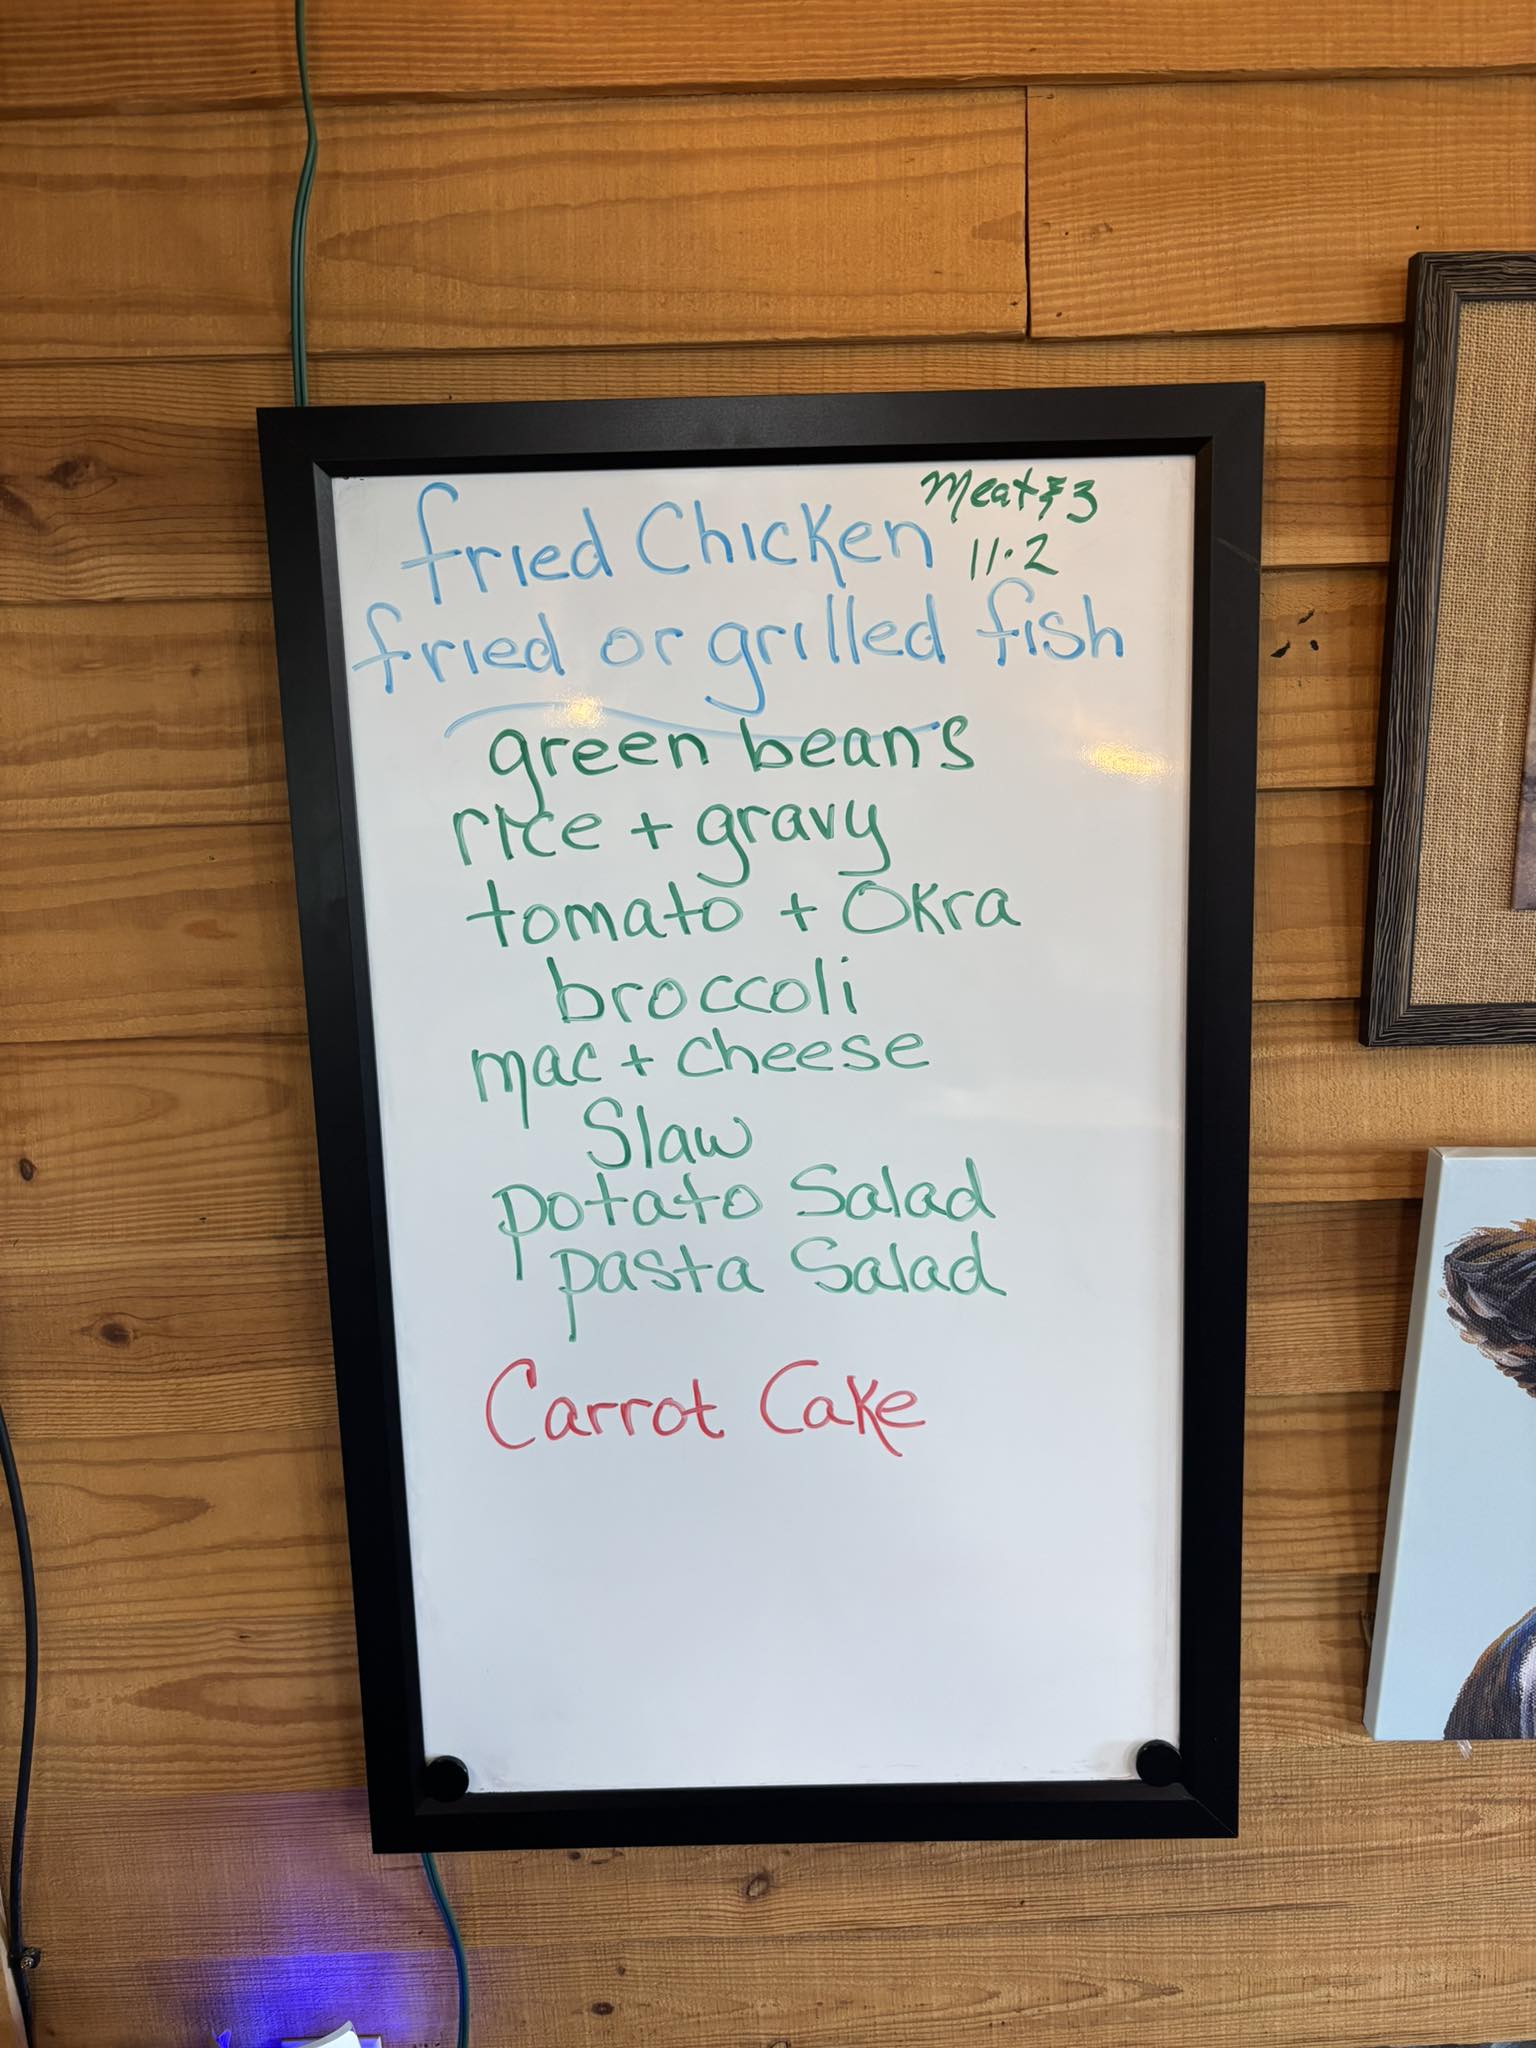 Meat & 3
11-2
fried Chicken
fried or grilled fish
green beans
rice + gravy
tomato + Okra
broccoli
mac + cheese
Slaw
potato Salad
pasta Salad
Carrot Cake